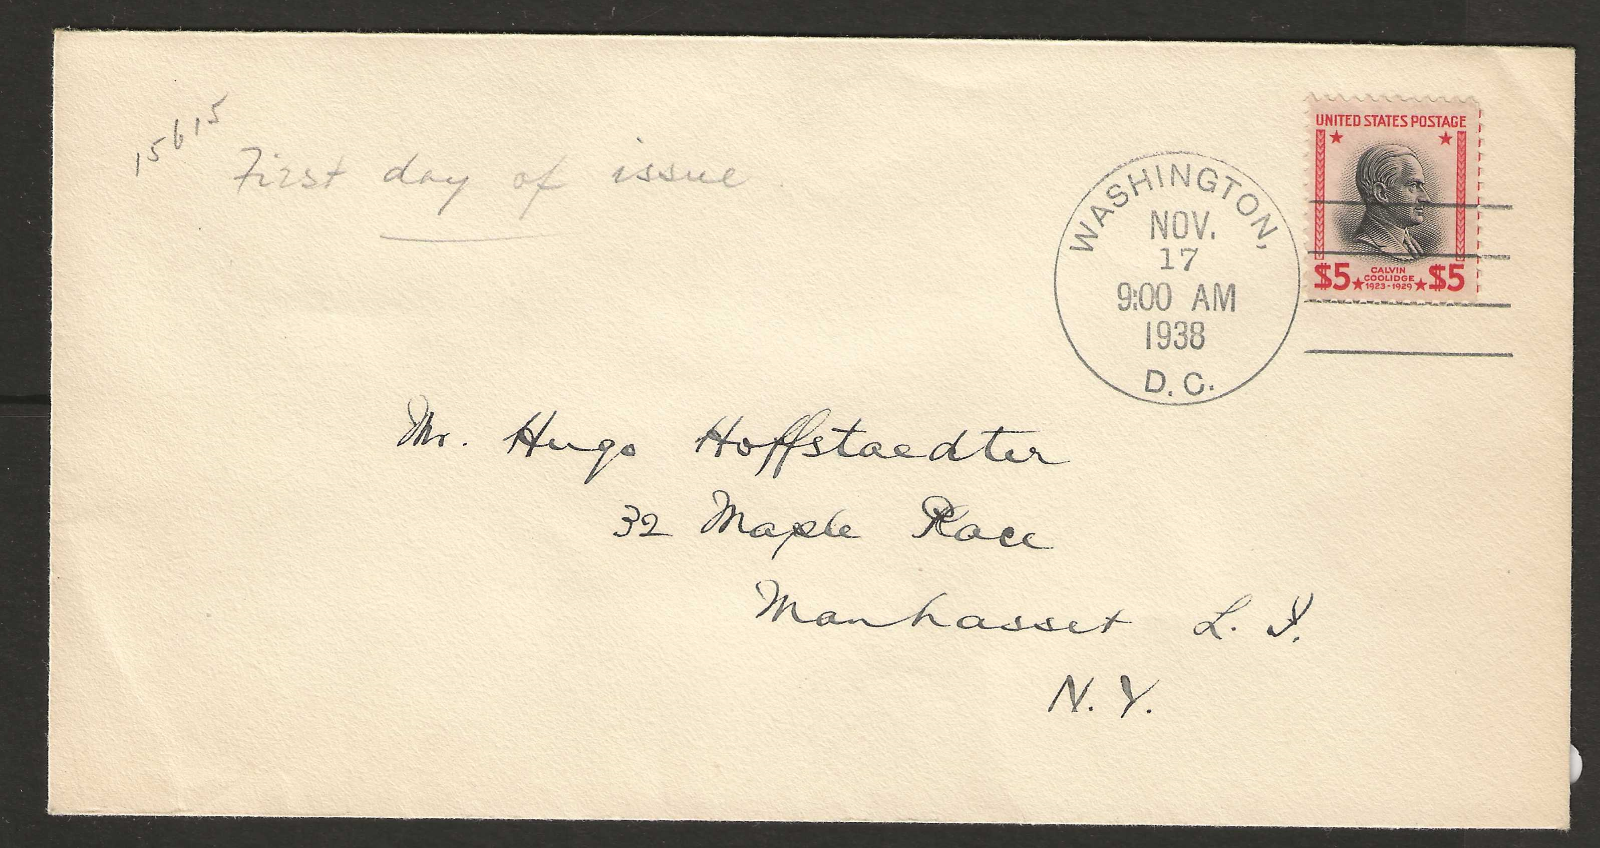 15615
First day of issue
WASHINGTON,
NOV.
17
9:00 AM
1938
D.C.
UNITED STATES POSTAGE
$5 CALVIN COOLIDGE 1923-1929 $5
Mr. Hugo Hoffstaedter
32 Maple Place
Manhasset L. I.
N.Y.